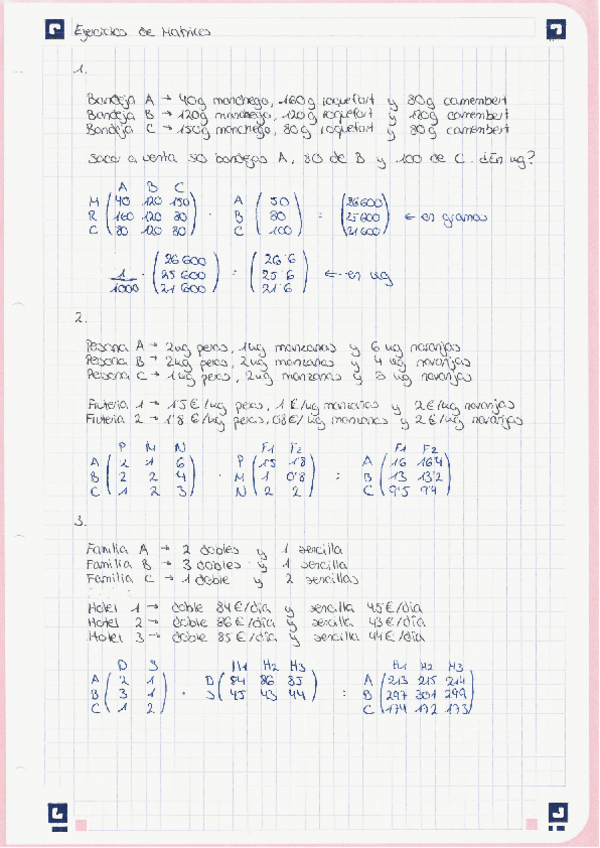 Ejercicios de Matrices
1.
Bandeja A → 40g manchego, 160g roquefort y 80g camembert
Bandeja B → 120g manchego, 120g roquefort y 120g camembert
Bandeja C → 150g manchego, 80g roquefort y 80g camembert
Sacar a venta 50 bandejas A, 80 de B y 100 de C. ¿En kg?
A B C
M ( 40 120 150 ) · A ( 50 ) = ( 26600 )
R ( 160 120 80 ) B ( 80 ) ( 25600 ) ← en gramos
C ( 80 120 80 ) C ( 100 ) ( 21600 )
1/1000 · ( 26600 ) = ( 26'6 )
( 25600 ) ( 25'6 ) ← en kg
( 21600 ) ( 21'6 )
2.
Persona A → 2kg peras, 1kg manzanas y 6 kg naranjas
Persona B → 2kg peras, 2kg manzanas y 4 kg naranjas
Persona C → 1kg peras, 2kg manzanas y 3 kg naranjas
Frutería 1 → 1'5€/kg peras, 1€/kg manzanas y 2€/kg naranjas
Frutería 2 → 1'8€/kg peras, 0'8€/kg manzanas y 2€/kg naranjas
P M N F1 F2 F1 F2
A ( 2 1 6 ) · P ( 1'5 1'8 ) = A ( 16 16'4 )
B ( 2 2 4 ) M ( 1 0'8 ) B ( 13 13'2 )
C ( 1 2 3 ) N ( 2 2 ) C ( 9'5 9'4 )
3.
Familia A → 2 dobles y 1 sencilla
Familia B → 3 dobles y 1 sencilla
Familia C → 1 doble y 2 sencillas
Hotel 1 → doble 84€/día y sencilla 45€/día
Hotel 2 → doble 86€/día y sencilla 43€/día
Hotel 3 → doble 85€/día y sencilla 44€/día
D S H1 H2 H3 H1 H2 H3
A ( 2 1 ) · D ( 84 86 85 ) = A ( 213 215 214 )
B ( 3 1 ) S ( 45 43 44 ) B ( 297 301 299 )
C ( 1 2 ) C ( 174 172 173 )